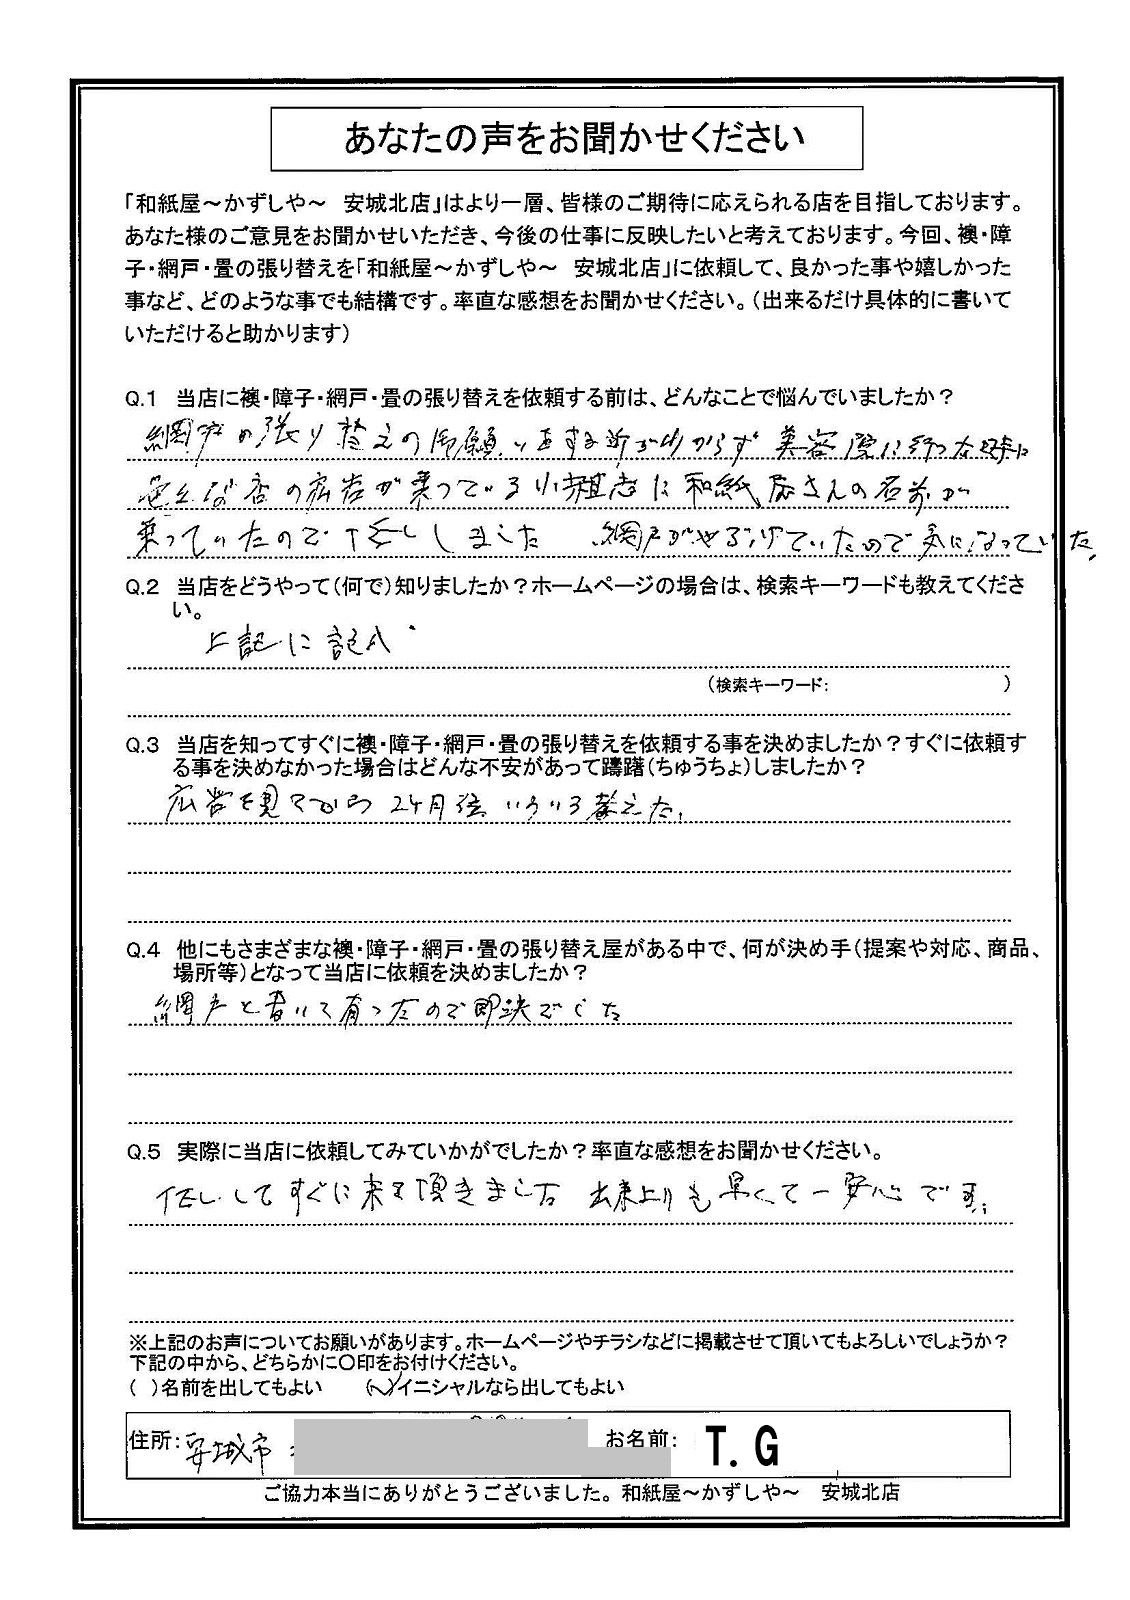 あなたの声をお聞かせください
「和紙屋～かずしや～　安城北店」はより一層、皆様のご期待に応えられる店を目指しております。
あなた様のご意見をお聞かせいただき、今後の仕事に反映したいと考えております。今回、襖・障
子・網戸・畳の張り替えを「和紙屋～かずしや～　安城北店」に依頼して、良かった事や嬉しかった
事など、どのような事でも結構です。率直な感想をお聞かせください。（出来るだけ具体的に書いて
いただけると助かります）
Q.1　当店に襖・障子・網戸・畳の張り替えを依頼する前は、どんなことで悩んでいましたか？
網戸の張り替えの御願いをする所がわからず 美容院に行った時に
色々な店の広告が乗っている小雑志に和紙屋さんの名前が
乗っていたので しました 網戸がやぶけていたので気になっていた。
Q.2　当店をどうやって（何で）知りましたか？ホームページの場合は、検索キーワードも教えてくださ
い。
上記に記入
（検索キーワード：　　　　　　　　　　）
Q.3　当店を知ってすぐに襖・障子・網戸・畳の張り替えを依頼する事を決めましたか？すぐに依頼す
る事を決めなかった場合はどんな不安があって躊躇（ちゅうちょ）しましたか？
広告を見てから 2ヶ月位 いろいろ考えた。
Q.4　他にもさまざまな襖・障子・網戸・畳の張り替え屋がある中で、何が決め手（提案や対応、商品、
場所等）となって当店に依頼を決めましたか？
網戸と書いて有ったので即決でした
Q.5　実際に当店に依頼してみていかがでしたか？率直な感想をお聞かせください。
してすぐに来て頂きました 出来上りも早くて一安心です。
※上記のお声についてお願いがあります。ホームページやチラシなどに掲載させて頂いてもよろしいでしょうか？
下記の中から、どちらかに〇印をお付けください。
（　）名前を出してもよい　　（✓）イニシャルなら出してもよい
住所：安城市　お名前：　T.G
ご協力本当にありがとうございました。和紙屋～かずしや～　安城北店